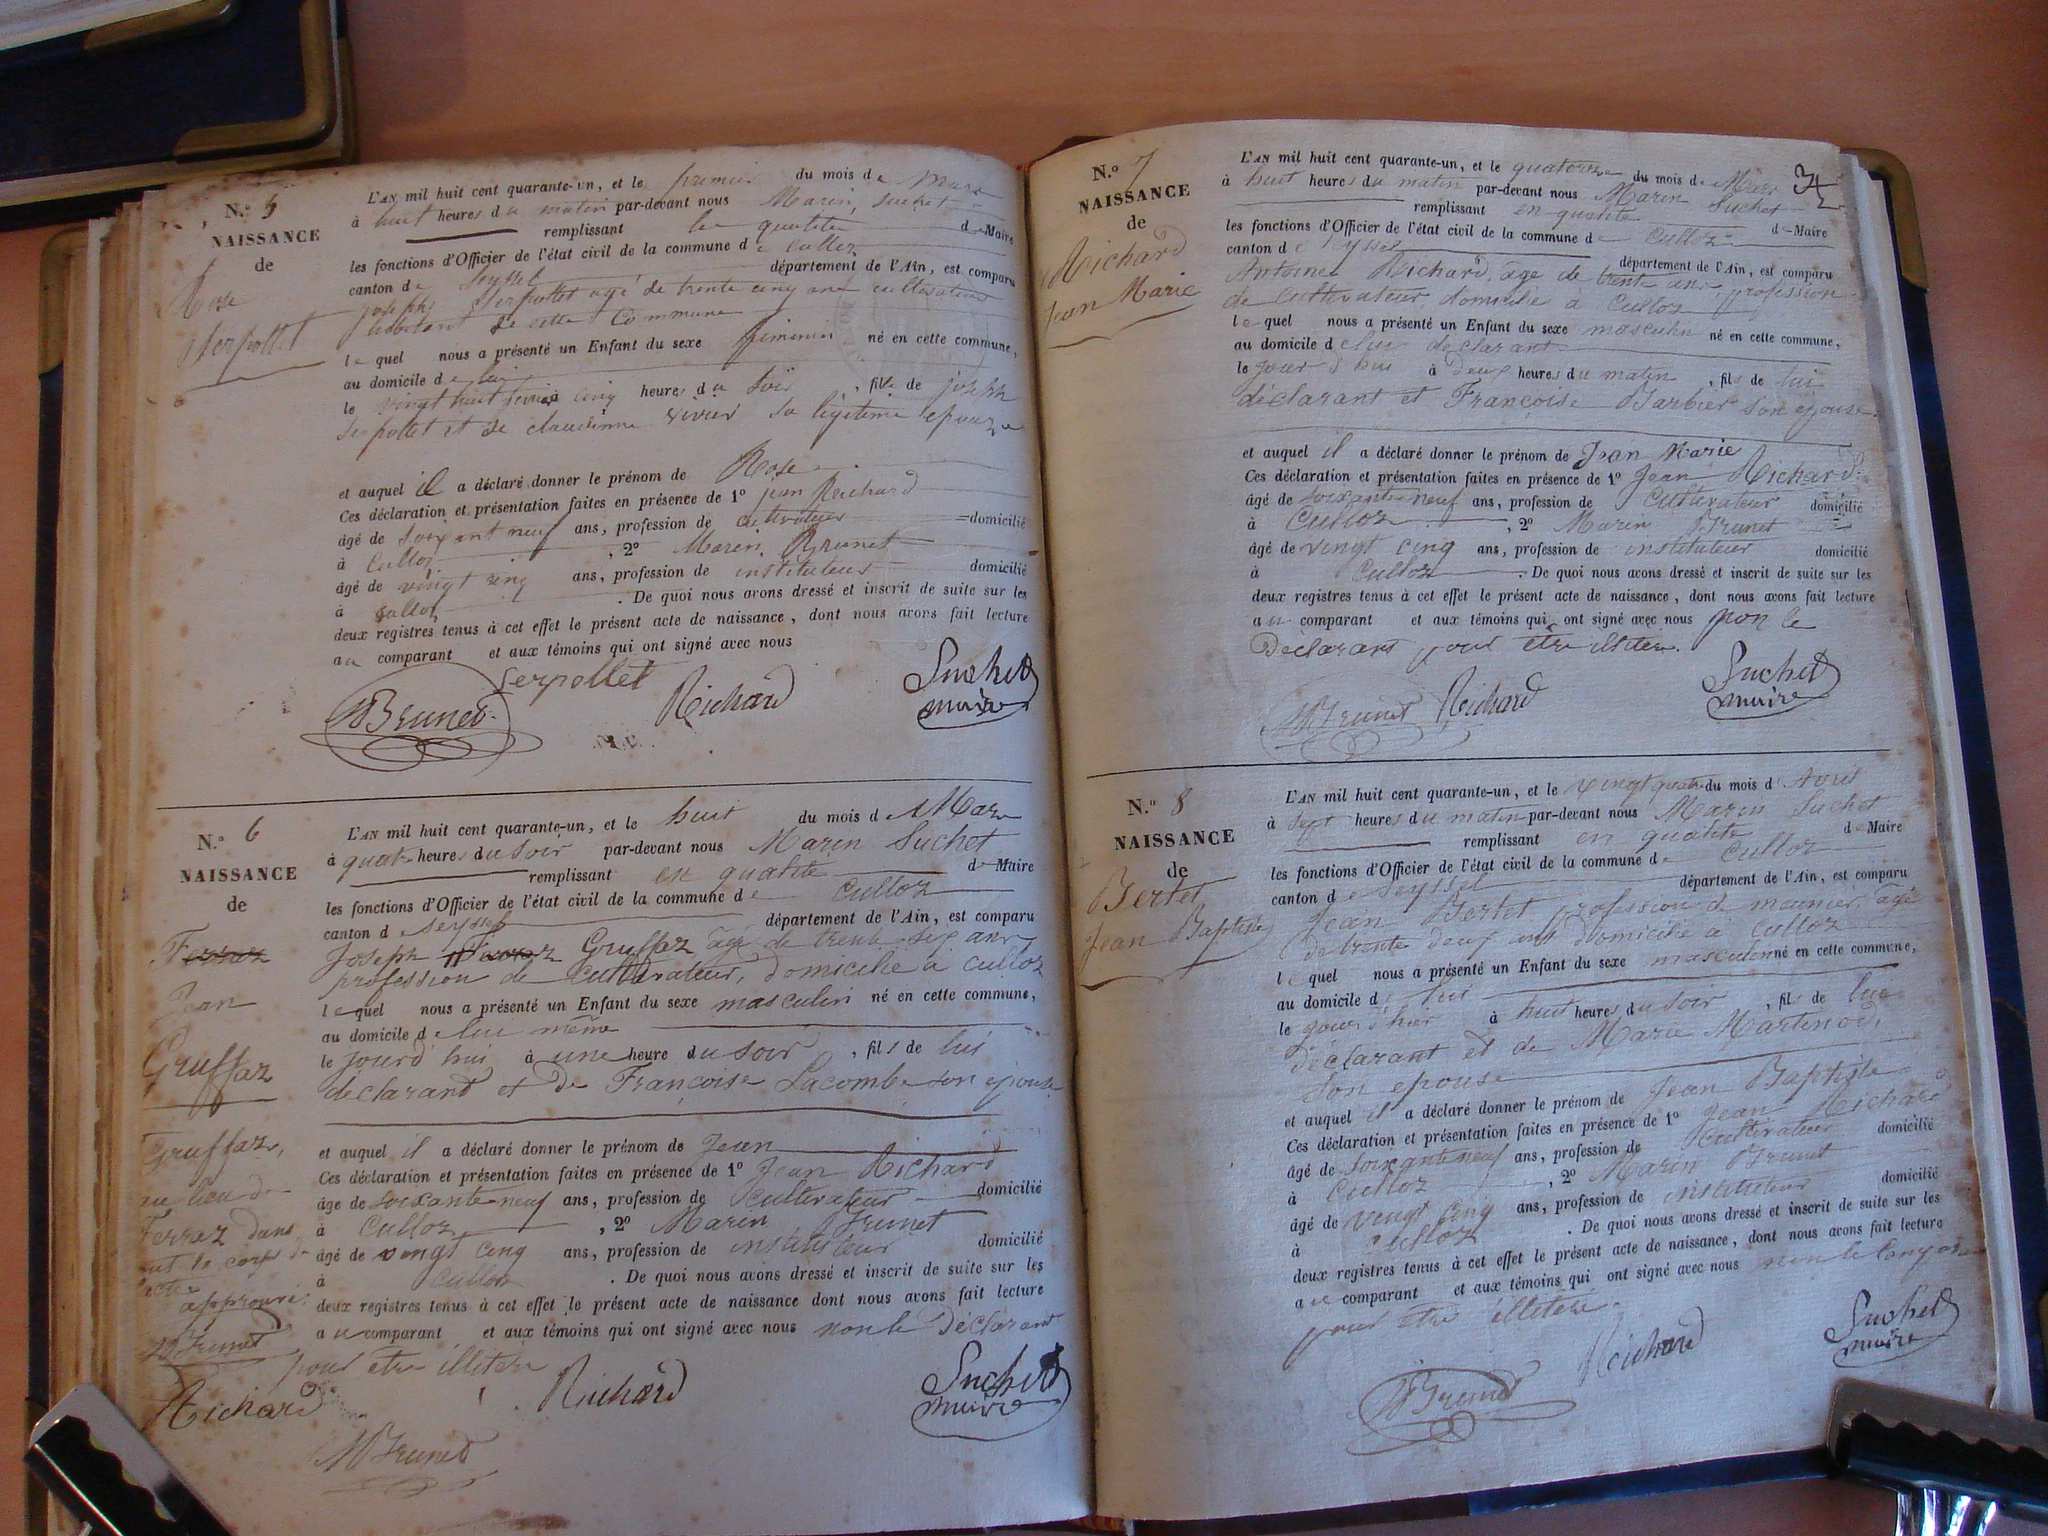 N.° 5
NAISSANCE
de
Rose
Serpollet
L'AN mil huit cent quarante-un, et le premier du mois de Mars
à huit heures du matin par-devant nous Marin Suchet
remplissant la qualité de Maire
les fonctions d'Officier de l'état civil de la commune de Culloz
canton de Seyssel département de l'Ain, est comparu
joseph Serpollet agé de trente cinq ans cultivateur
habitant de cette Commune
le quel nous a présenté un Enfant du sexe féminin né en cette commune,
au domicile de lui
le vingt huit à cinq heures du soir, fille de joseph
Serpollet et de claudinne vivier sa légitime epouze
et auquel il a déclaré donner le prénom de Rose
Ces déclaration et présentation faites en présence de 1° jean Richard
âgé de soixant neuf ans, profession de cultivateur domicilié
à Culloz, 2° Marin Brunet
âgé de vingt cinq ans, profession de instituteur domicilié
à Culloz. De quoi nous avons dressé et inscrit de suite sur les
deux registres tenus à cet effet le présent acte de naissance, dont nous avons fait lecture
au comparant et aux témoins qui ont signé avec nous
Serpollet
MBrunet Richard Suchet
maire
N.° 6
NAISSANCE
de
Ferraz
Jean
Gruffaz
Gruffaz,
au lieu de
Ferraz dans
et le corps de
l'acte
approuvé
MBrunet
Richard
L'AN mil huit cent quarante-un, et le huit du mois de Mars
à quatre heures du soir par-devant nous Marin Suchet
remplissant en qualité de Maire
les fonctions d'Officier de l'état civil de la commune de Culloz
canton de seyssel département de l'Ain, est comparu
Joseph Gruffaz âgé de trente six ans
profession de cultivateur, domicilié à culloz
le quel nous a présenté un Enfant du sexe masculin né en cette commune,
au domicile de lui même
le jourd'hui à une heure du soir, fils de lui
declarant et de Francoise Lacombe son epouse
et auquel il a déclaré donner le prénom de Jean
Ces déclaration et présentation faites en présence de 1° Jean Richard
âgé de soixante neuf ans, profession de cultivateur domicilié
à Culloz, 2° Marin Brunet
âgé de vingt cinq ans, profession de instituteur domicilié
à culloz. De quoi nous avons dressé et inscrit de suite sur les
deux registres tenus à cet effet le présent acte de naissance dont nous avons fait lecture
au comparant et aux témoins qui ont signé avec nous non le Déclarant
pour être illitere
Richard Suchet
maire
MBrunet
34
N.° 7
NAISSANCE
de
Richard
Jean Marie
L'AN mil huit cent quarante-un, et le quatorze du mois de Mars
à huit heures du matin par-devant nous Marin Suchet
remplissant en qualité de Maire
les fonctions d'Officier de l'état civil de la commune de Culloz
canton de Seyssel département de l'Ain, est comparu
Antoine Richard, âgé de trente ans, profession
de cultivateur domicilié à Culloz
le quel nous a présenté un Enfant du sexe masculin né en cette commune,
au domicile de lui declarant
le jour d'hui à deux heures du matin, fils de lui
déclarant et Françoise Barbier son epouse
et auquel il a déclaré donner le prénom de Jean Marie
Ces déclaration et présentation faites en présence de 1° Jean Richard
âgé de soixante neuf ans, profession de cultivateur domicilié
à Culloz, 2° Marin Brunet
âgé de vingt cinq ans, profession de instituteur domicilié
à Culloz. De quoi nous avons dressé et inscrit de suite sur les
deux registres tenus à cet effet le présent acte de naissance, dont nous avons fait lecture
au comparant et aux témoins qui ont signé avec nous non le
Déclarant pour être illitere.
MBrunet Richard Suchet
maire
N.° 8
NAISSANCE
de
Bertet
Jean Baptiste
L'AN mil huit cent quarante-un, et le vingt quatre du mois d'Avril
à sept heures du matin par-devant nous Marin Suchet
remplissant en qualité de Maire
les fonctions d'Officier de l'état civil de la commune de Culloz
canton de Seyssel département de l'Ain, est comparu
Jean Bertet profession de meunier, âgé
de trente deux ans domicilié à culloz
le quel nous a présenté un Enfant du sexe masculin né en cette commune,
au domicile de lui
le jour d'hier à huit heures du soir, fils de lui
déclarant et de Marie Martinod,
son epouse
et auquel il a déclaré donner le prénom de Jean Baptiste
Ces déclaration et présentation faites en présence de 1° Jean Richard
âgé de soixante neuf ans, profession de cultivateur domicilié
à Culloz, 2° Marin Brunet
âgé de vingt cinq ans, profession de instituteur domicilié
à culloz. De quoi nous avons dressé et inscrit de suite sur les
deux registres tenus à cet effet le présent acte de naissance, dont nous avons fait lecture
au comparant et aux témoins qui ont signé avec nous non le Comparant
pour être illitere.
MBrunet Richard Suchet
maire